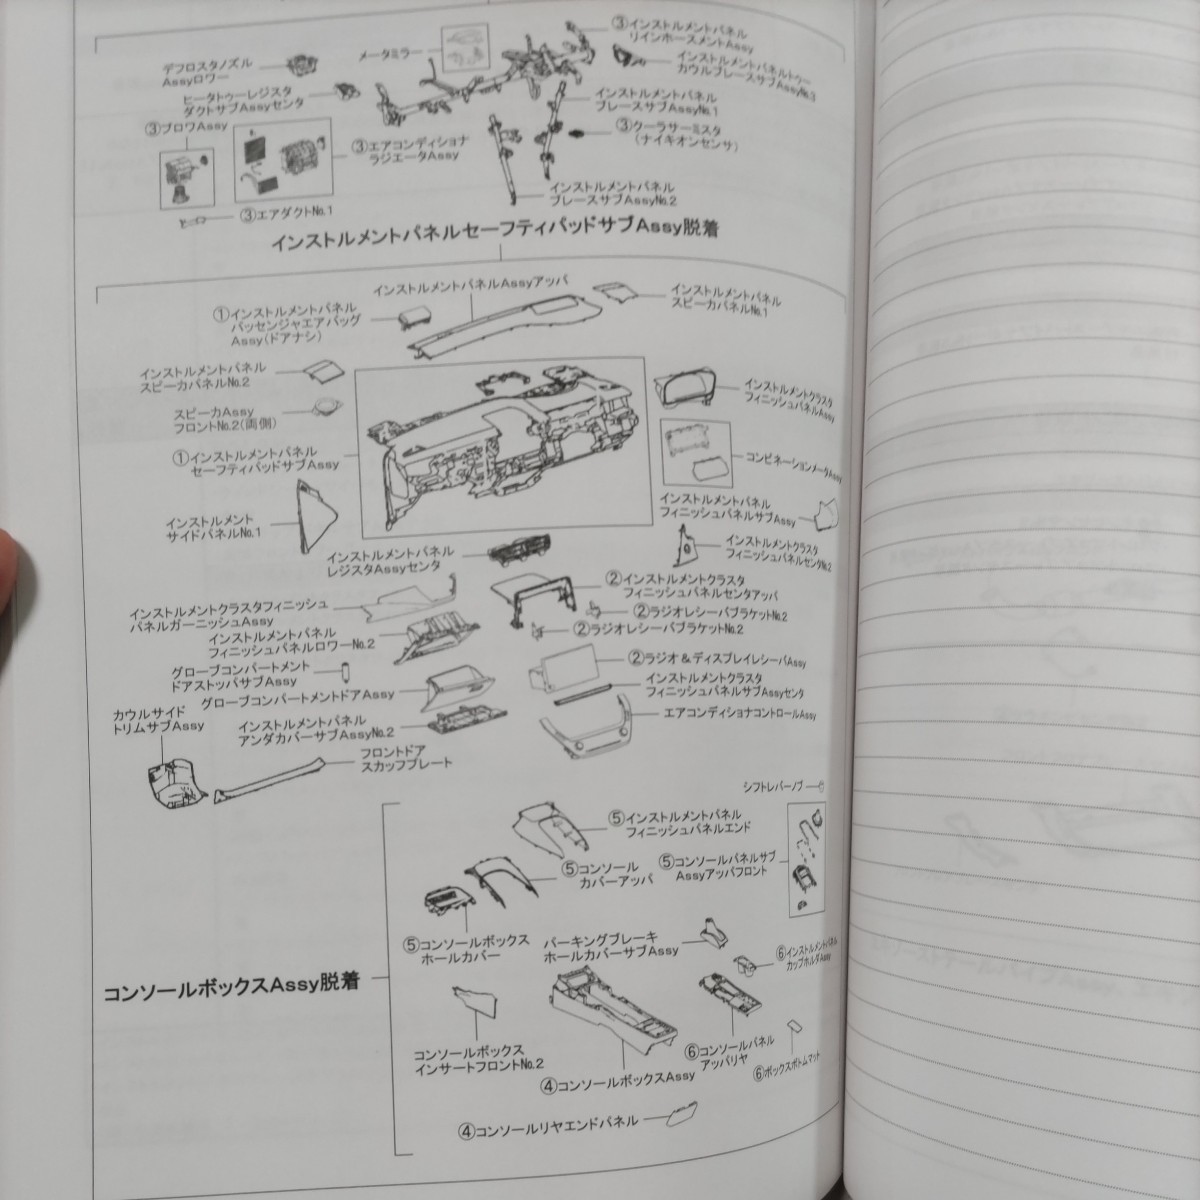 ③インストルメントパネル
リインホースメントAssy
メータミラー
デフロスタノズル
Assyロワー
インストルメントパネルトゥー
カウルブレースサブAssy№3
ヒータトゥーレジスタ
ダクトサブAssyセンタ
インストルメントパネル
ブレースサブAssy№1
③ブロワAssy
③クーラサーミスタ
(ナイキオンセンサ)
③エアコンディショナ
ラジエータAssy
インストルメントパネル
ブレースサブAssy№2
③エアダクト№1
インストルメントパネルセーフティパッドサブAssy脱着
インストルメントパネルAssyアッパ
インストルメントパネル
スピーカパネル№1
①インストルメントパネル
パッセンジャエアバッグ
Assy(ドアナシ)
インストルメントパネル
スピーカパネル№2
インストルメントクラスタ
フィニッシュパネルAssy
スピーカAssy
フロント№2(両側)
①インストルメントパネル
セーフティパッドサブAssy
コンビネーションメータAssy
インストルメントパネル
フィニッシュパネルサブAssy
インストルメント
サイドパネル№1
インストルメントクラスタ
フィニッシュパネルセンタ№2
インストルメントパネル
レジスタAssyセンタ
②インストルメントクラスタ
フィニッシュパネルセンタアッパ
インストルメントクラスタフィニッシュ
パネルガーニッシュAssy
②ラジオレシーバブラケット№2
②ラジオレシーバブラケット№2
インストルメントパネル
フィニッシュパネルロワー№2
②ラジオ＆ディスプレイレシーバAssy
グローブコンパートメント
ドアストッパサブAssy
インストルメントクラスタ
フィニッシュパネルサブAssyセンタ
グローブコンパートメントドアAssy
エアコンディショナコントロールAssy
カウルサイド
トリムサブAssy
インストルメントパネル
アンダカバーサブAssy№2
フロントドア
スカッフプレート
シフトレバーノブ
⑤インストルメントパネル
フィニッシュパネルエンド
⑤コンソール
カバーアッパ
⑤コンソールパネルサブ
Assyアッパフロント
⑤コンソールボックス
ホールカバー
パーキングブレーキ
ホールカバーサブAssy
⑥インストルメントパネル
カップホルダAssy
コンソールボックスAssy脱着
コンソールボックス
インサートフロント№2
⑥コンソールパネル
アッパリヤ
④コンソールボックスAssy
⑥ボックスボトムマット
④コンソールリヤエンドパネル